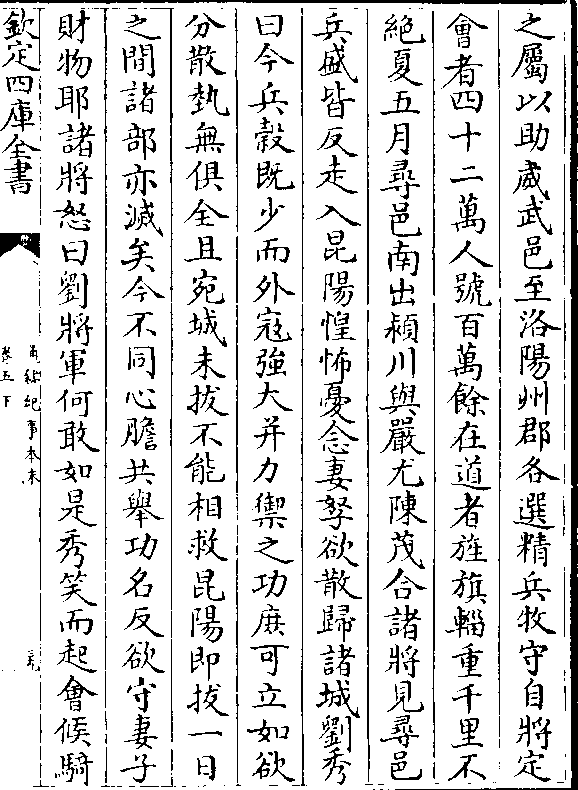 之屬以助威武邑至洛陽州郡各選精兵牧守自將定
會者四十二萬人號百萬餘在道者旌旗輜重千里不
絕夏五月尋邑南出潁川與嚴尤陳茂合諸將見尋邑
兵盛皆反走入昆陽惶怖憂念妻孥欲散歸諸城劉秀
曰今兵穀既少而外寇強大并力禦之功庶可立如欲
分散埶無俱全且宛城未拔不能相救昆陽即拔一日
之間諸部亦滅矣今不同心膽共舉功名反欲守妻子
財物耶諸將怒曰劉將軍何敢如是秀笑而起會候騎
欽定四庫全書
通鑑紀事本末
卷五下